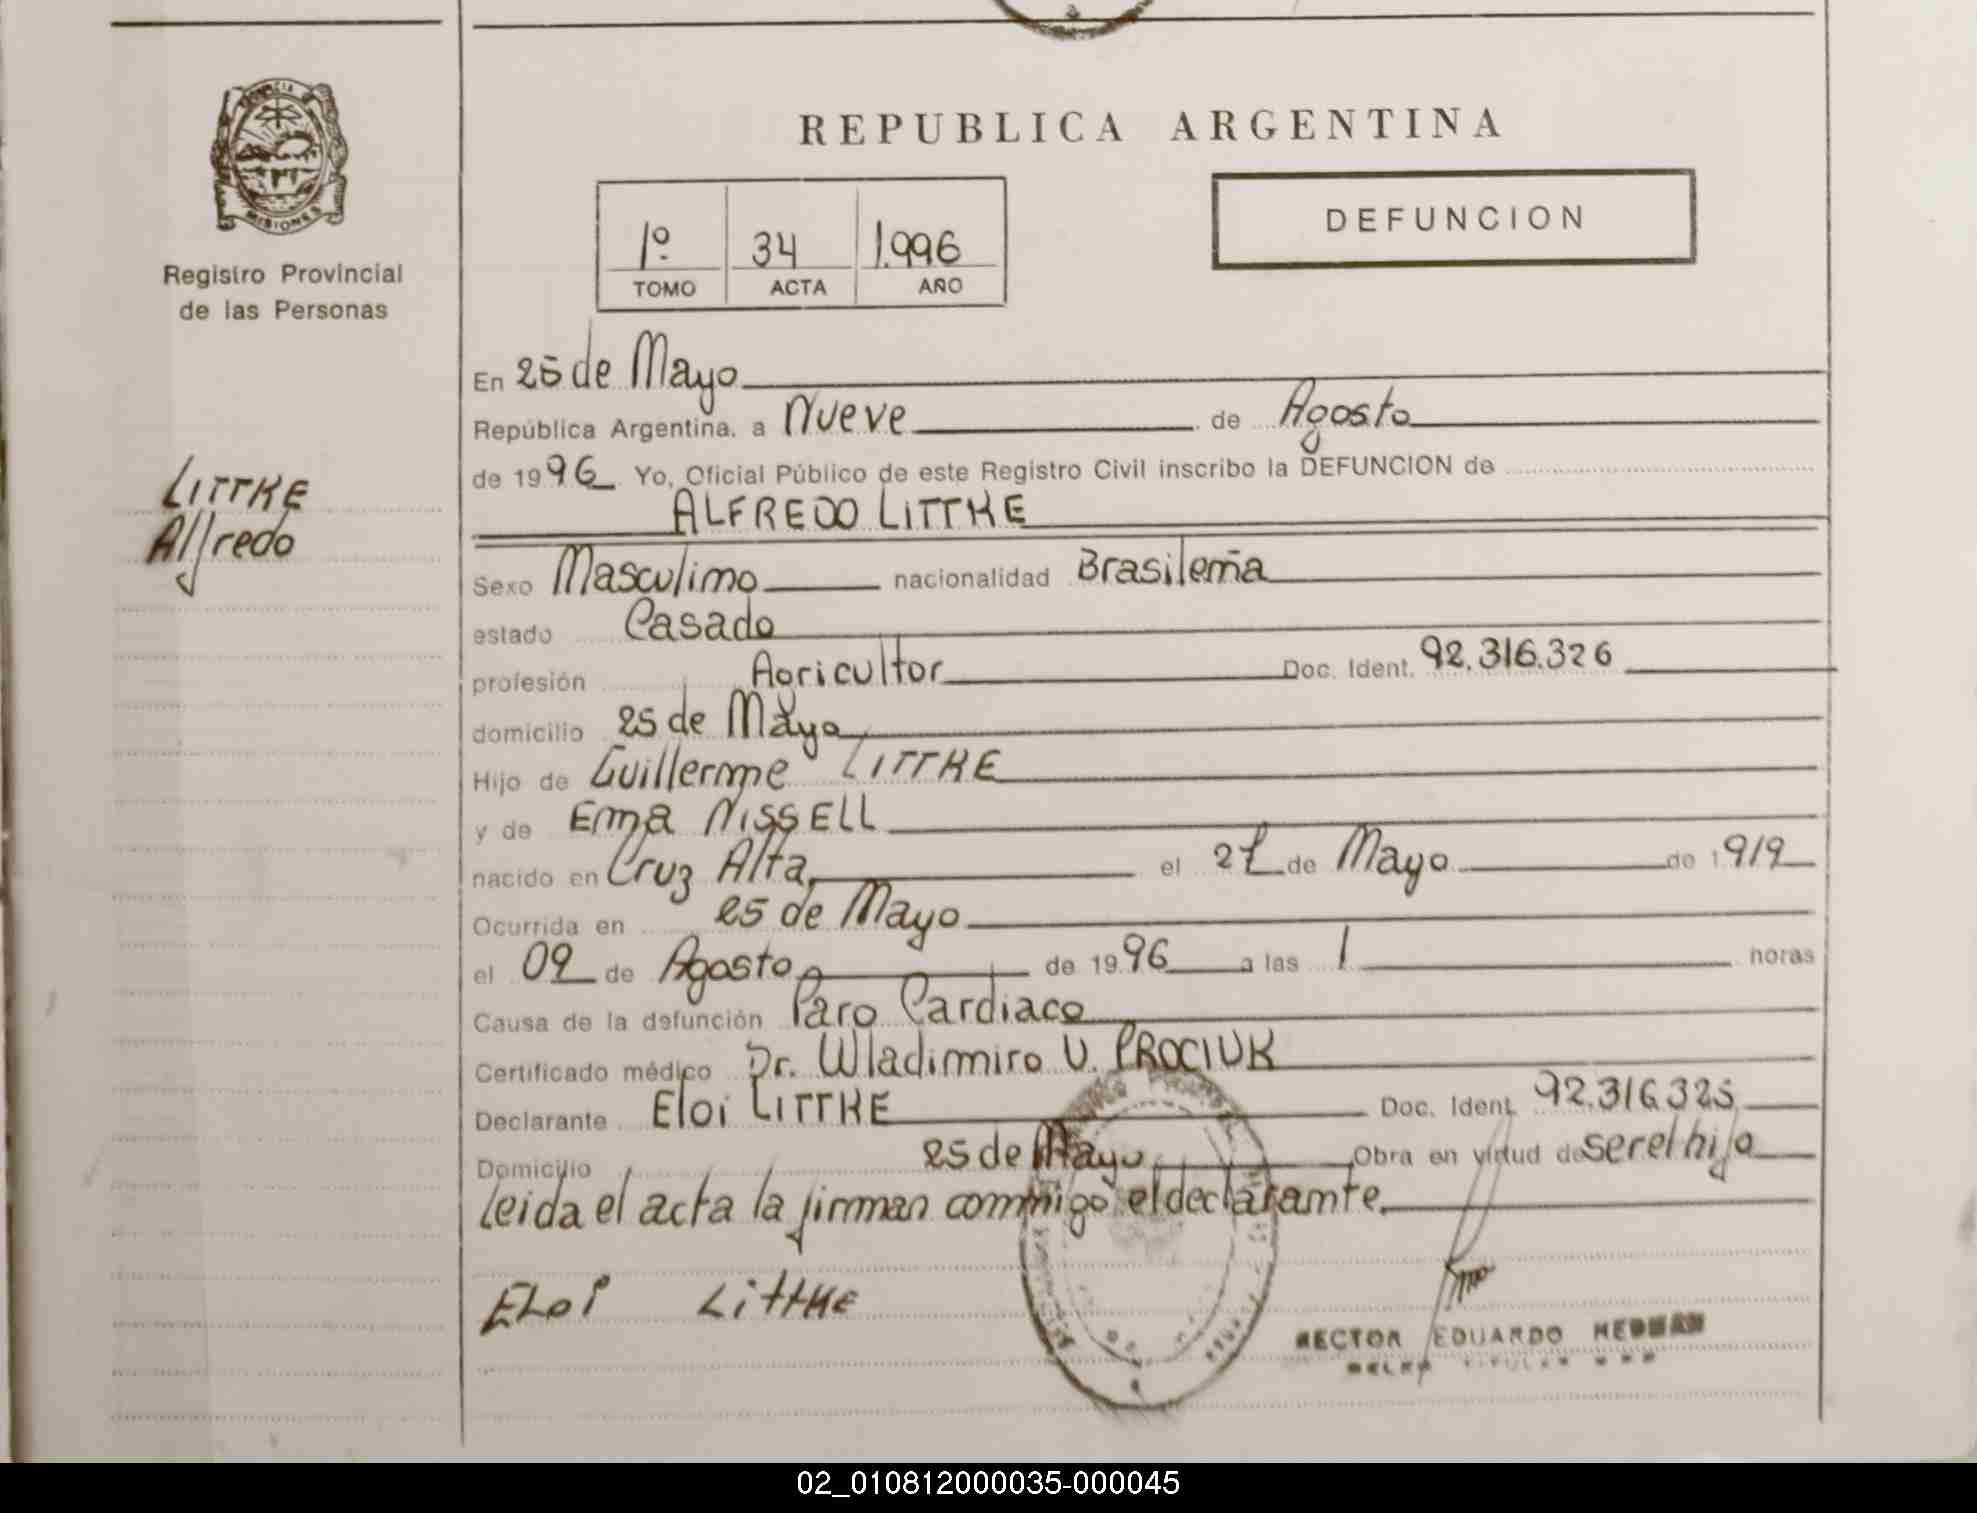 MISIONES
Registro Provincial
de las Personas
LITTKE
Alfredo
REPUBLICA ARGENTINA
DEFUNCION
1º 34 1.996
TOMO ACTA AÑO
En 25 de Mayo
República Argentina, a Nueve de Agosto
de 1996 Yo, Oficial Público de este Registro Civil inscribo la DEFUNCION de
ALFREDO LITTKE
Sexo Masculino nacionalidad Brasileña
estado Casado
profesión Agricultor Doc. Ident. 92.316.326
domicilio 25 de Mayo
Hijo de Guillerme LITTKE
y de Erna NISSELL
nacido en Cruz Alta, el 27 de Mayo de 1919
Ocurrida en 25 de Mayo
el 09 de Agosto de 1996 a las 1 horas
Causa de la defunción Paro Cardiaco
Certificado médico Dr. Wladimiro V. PROCIUK
Declarante Eloi LITTKE Doc. Ident. 92.316.325
Domicilio 25 de Mayo Obra en virtud de ser el hijo
Leida el acta la firman conmigo el declarante.
ELOI LITTKE
HECTOR EDUARDO
02_010812000035-000045